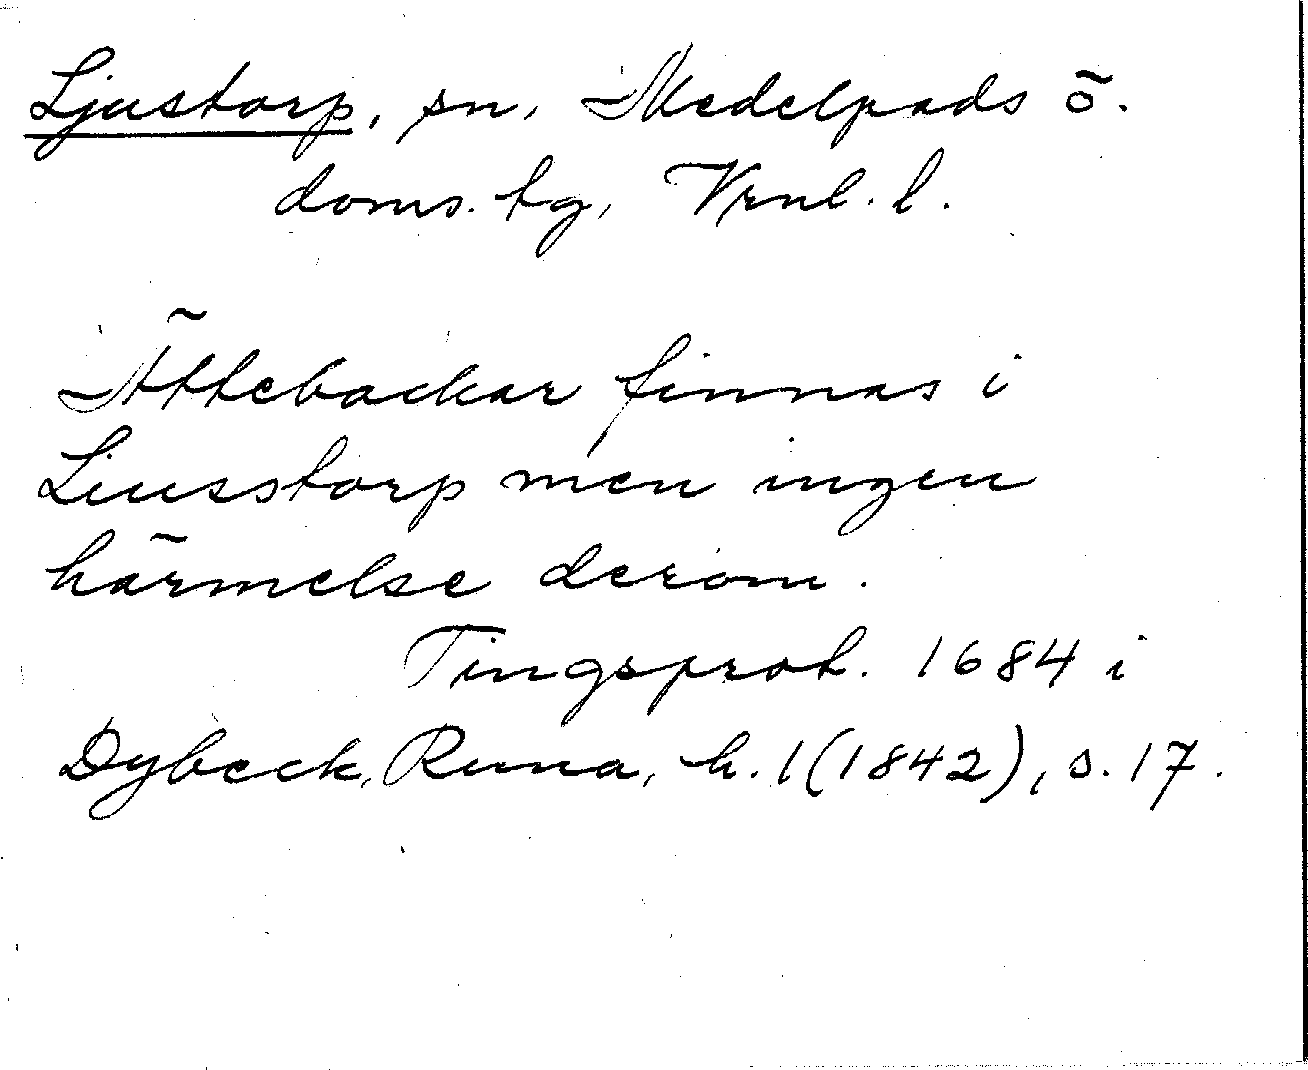 Ljustorp, sn, Medelpads ö.
doms. tg, Vrnl. l.
Ättebackar finnas i
Liusstorp men ingen
härmelse derom.
Tingsprot. 1684 i
Dybeck, Runa, h. 1 (1842), s. 17.